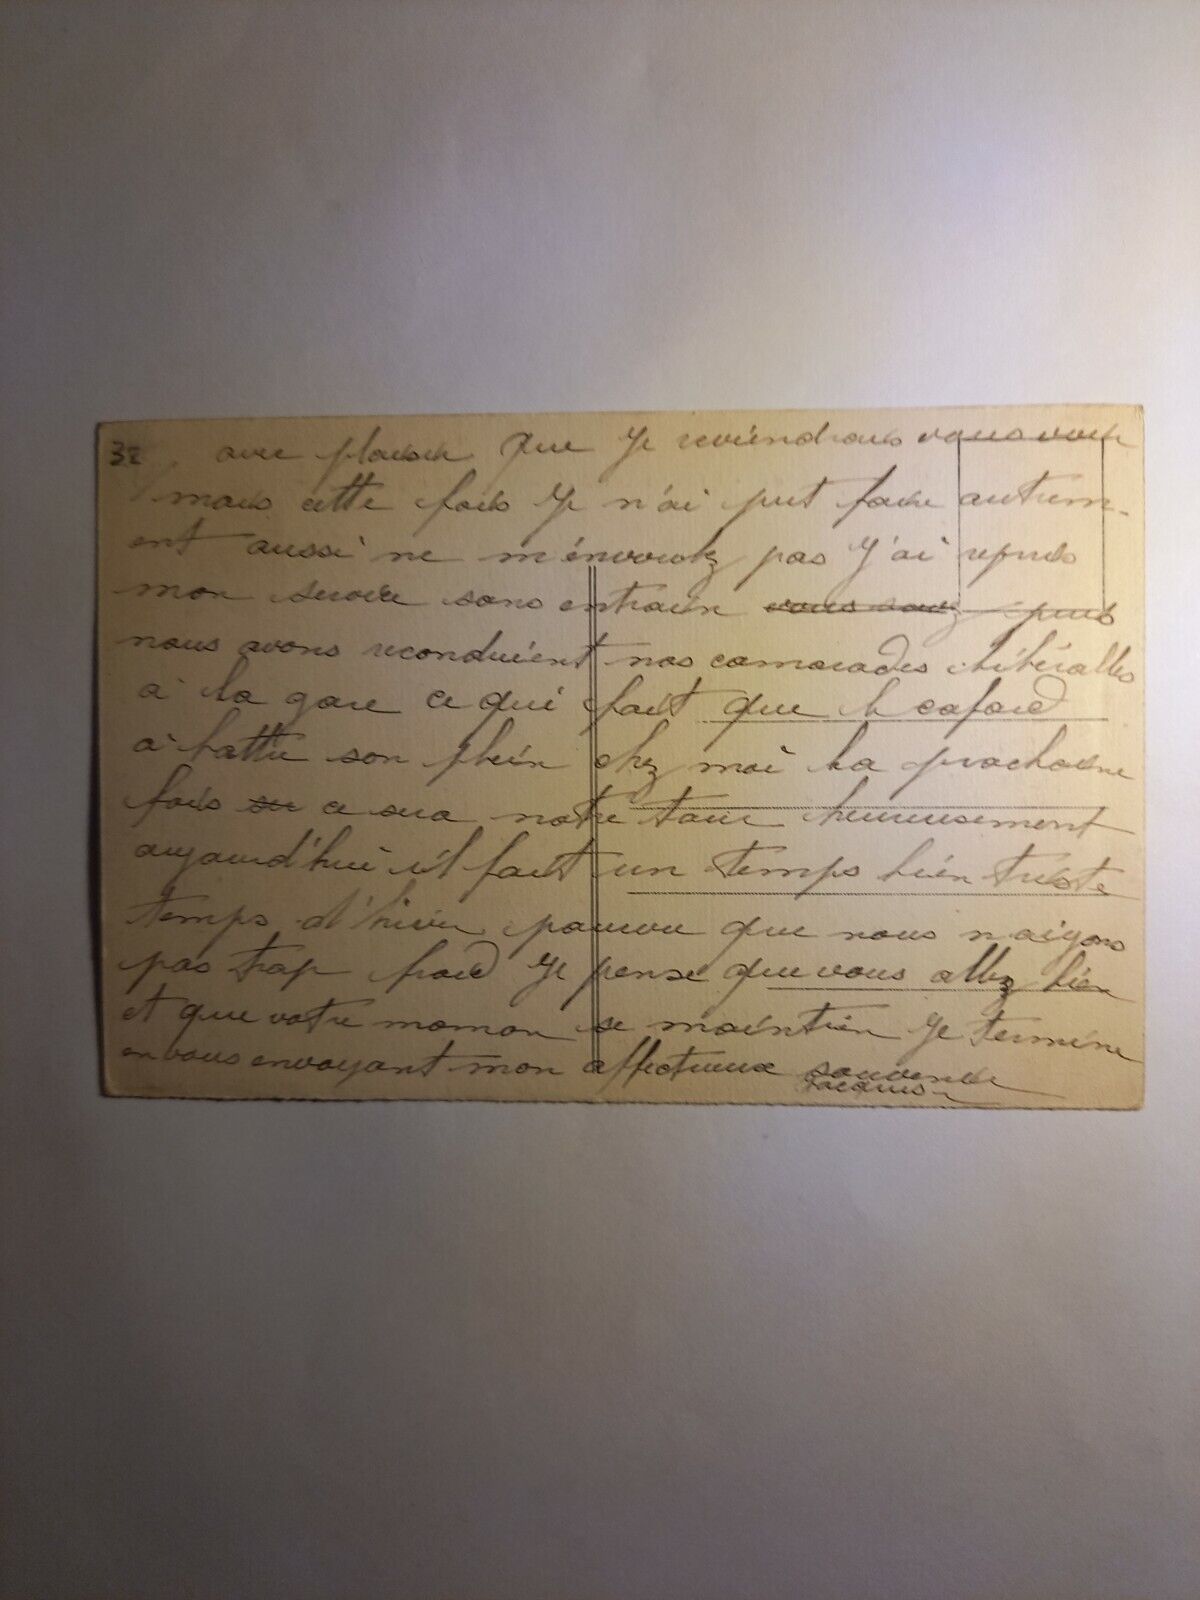 32 avec plaisir que je reviendrais vous voir
mais cette fois je n'ai put faire autrem-
ent aussi ne m'en voulez pas j'ai repris
mon service sans entrain vous savez puis
nous avons reconduient nos camarades libéralles
à la gare ce qui fait que le cafard
à battu son plein chez moi la prochaine
fois se ce sera notre tour heureusement
aujourd'hui il fait un temps bien triste
temps d'hiver pourvu que nous n'aiyons
pas trop froid je pense que vous allez bien
et que votre maman se maintien je termine
en vous envoyant mon affectueux souvenir
Jacques